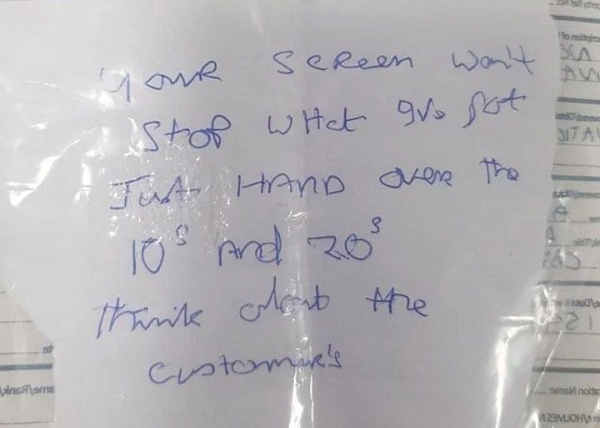 Your Screen Won't
Stop What
Just HAND over the
10s And 20s
think about the
customer's